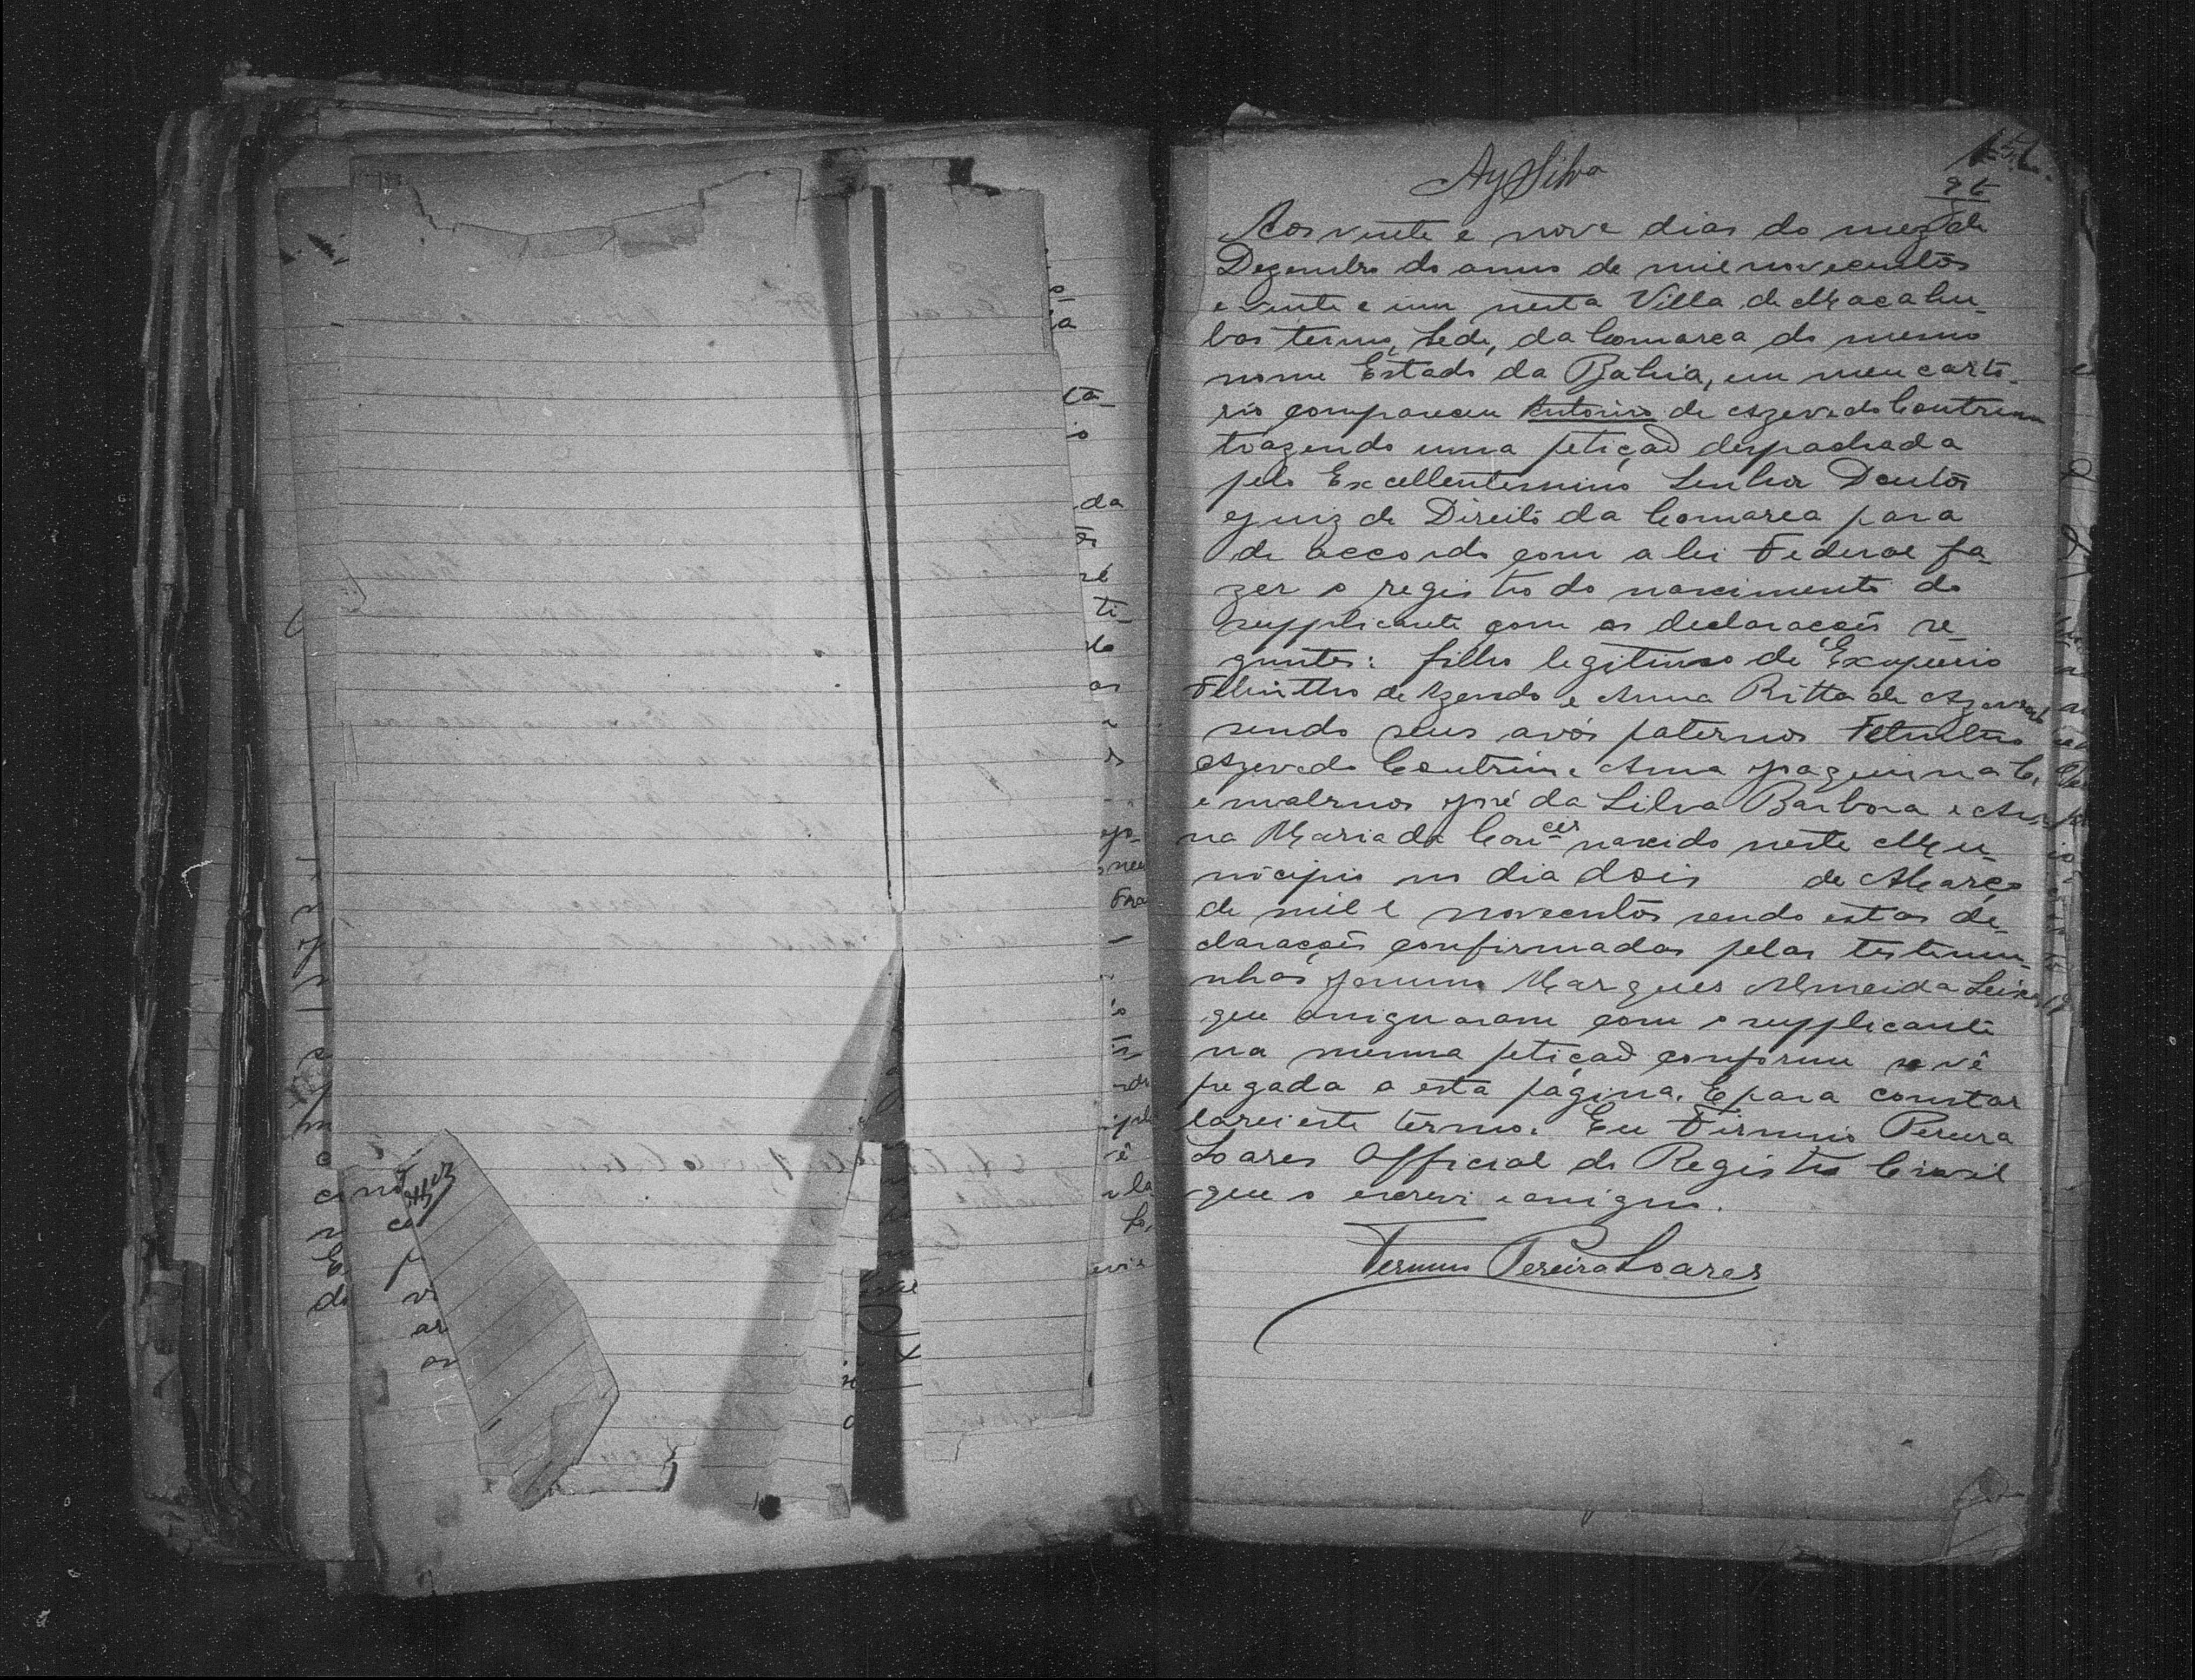 AySilva
96
Aos vinte e nove dias do mez de
Dezembro do anno de mil novecentos
e vinte e um nesta Villa de Macahu-
bas termo, Sede, da Comarca do mesmo
nome Estado da Bahia, em meu carto-
rio compareceu Antonio de Azevedo Coutrim
trazendo uma petição despachada
pelo Excellentissimo Senhor Doutor
Juiz de Direito da Comarca para
de accordo com a lei Federal fa-
zer o registro do nascimento do
supplicante com as declarações se-
guintes: filho legitimo de Exuperio
de Azevedo e Anna Ritta de Azevedo
sendo seus avós paternos
Azevedo Coutrim e Anna Joaquina C.
e maternos José da Silva Barbosa e An-
na Maria da Con^cer nascido neste Mu-
nicipio no dia dois de Março
de mil e novecentos sendo estas de-
clarações confirmadas pelas testemu-
nhas Marques Almeida
que assignaram com o supplicante
na mesma petição conforme se vê
pregada a esta página. E para constar
lavrei este termo. Eu Firmino Pereira
Soares Official do Registro Civil
que o escrevi e assigno.
Firmino Pereira Soares